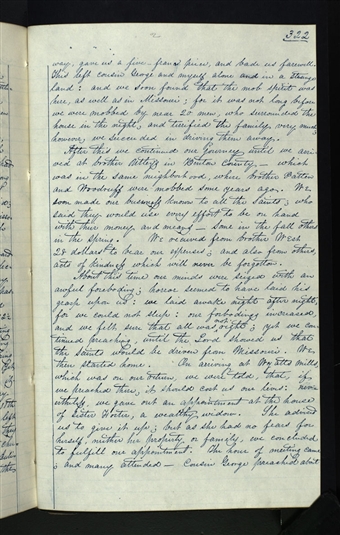 322
way, gave us a five-franc piece, and bade us farewell.
This left cousin George and myself alone and in a strange
land: and we soon found that the mob spirit was
here, as well as in Missouri; for it was not long before
we were mobbed by near 20 men, who surrounded the
house in the night, and terrified the family very much
however, we succeeded in driving them away.
After this we continued our journey, until we arri-
ved at brother Utley's in Benton County, — which
was in the same neighborhood, where brother Patten
and Woodruff were mobbed some years ago. We
soon made our business known to all the Saints; who
said they would use every effort to be on hand
with their money and means, — some in the fall others
in the spring. We received from brother West
28 dollars to bear our expenses; and also from others,
acts of kindness which will never be forgotten.
About this time our minds were seized with an
awful foreboding; horror seemed to have laid his
grasp upon us: we laid awake night after night,
for we could not sleep: our forebodings increased,
and we felt sure that all was not right; yet we con-
tinued preaching, until the Lord showed us that
the Saints would be driven from Missouri. We
then started home. On arriving at Wyatts mills,
which was on our return, we were told, that, if
we preached there, it should cost us our lives:
we gave out an appointment at the house
of Sister Foster, a wealthy widow. She advised
us to give it up; but as she had no fears for
herself, neither her property or family, we concluded
to fulfill our appointment. The hour of meeting came
; and many attended — Cousin George preached about